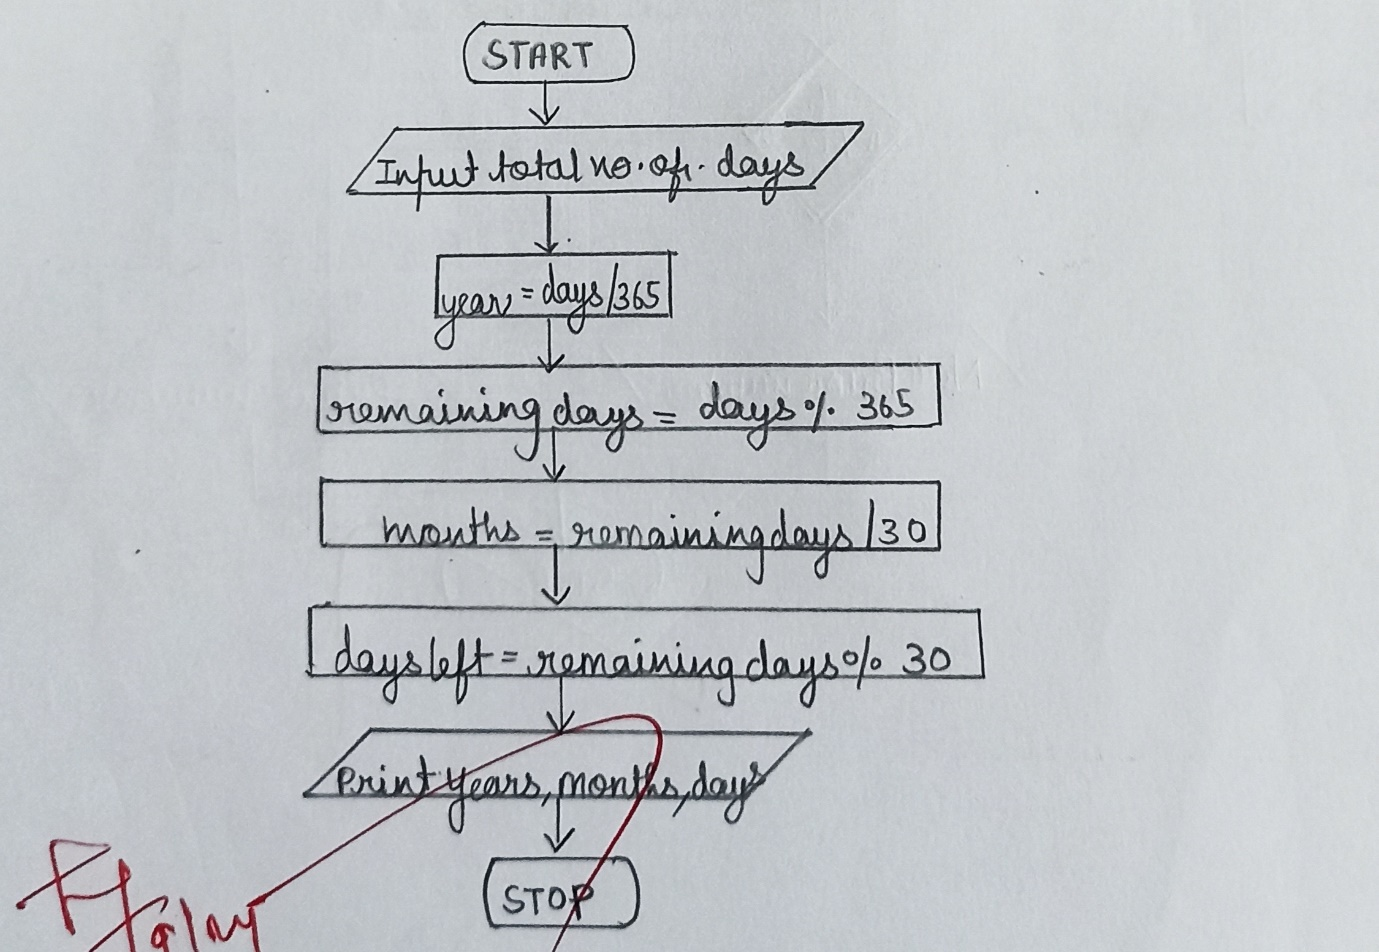 START
Input total no. of. days
year = days/365
remaining days = days % 365
months = remaining days /30
days left = remaining days % 30
Print years, months, days
STOP